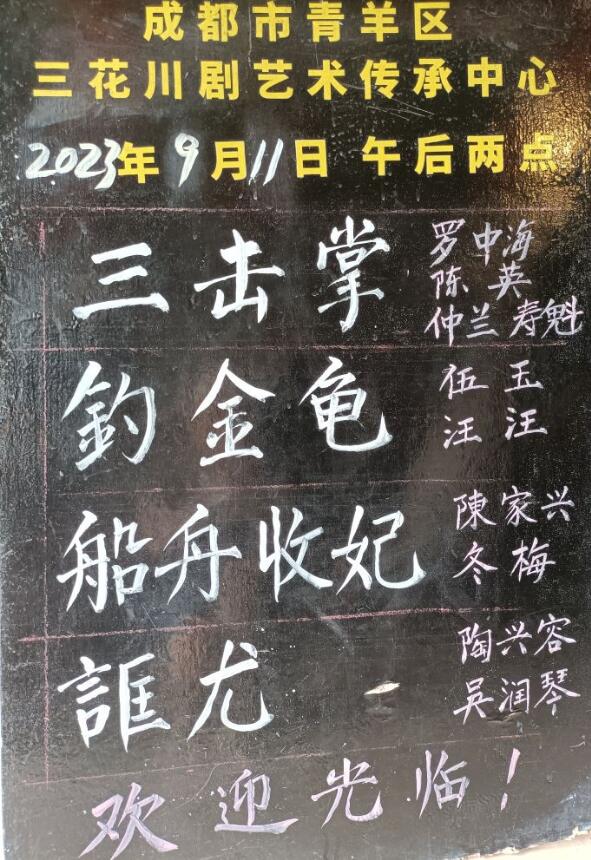 成都市青羊区
三花川剧艺术传承中心
2023年9月11日 午后两点
三击掌
罗中海
陈英
仲兰寿魁
釣金龟
伍玉
汪汪
船舟收妃
陳家兴
冬梅
誆尤
陶兴容
吴润琴
欢迎光临！